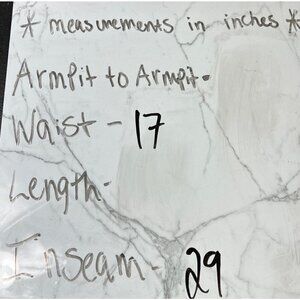 * measurements in inches *
Armpit to Armpit-
Waist - 17
Length-
Inseam - 29